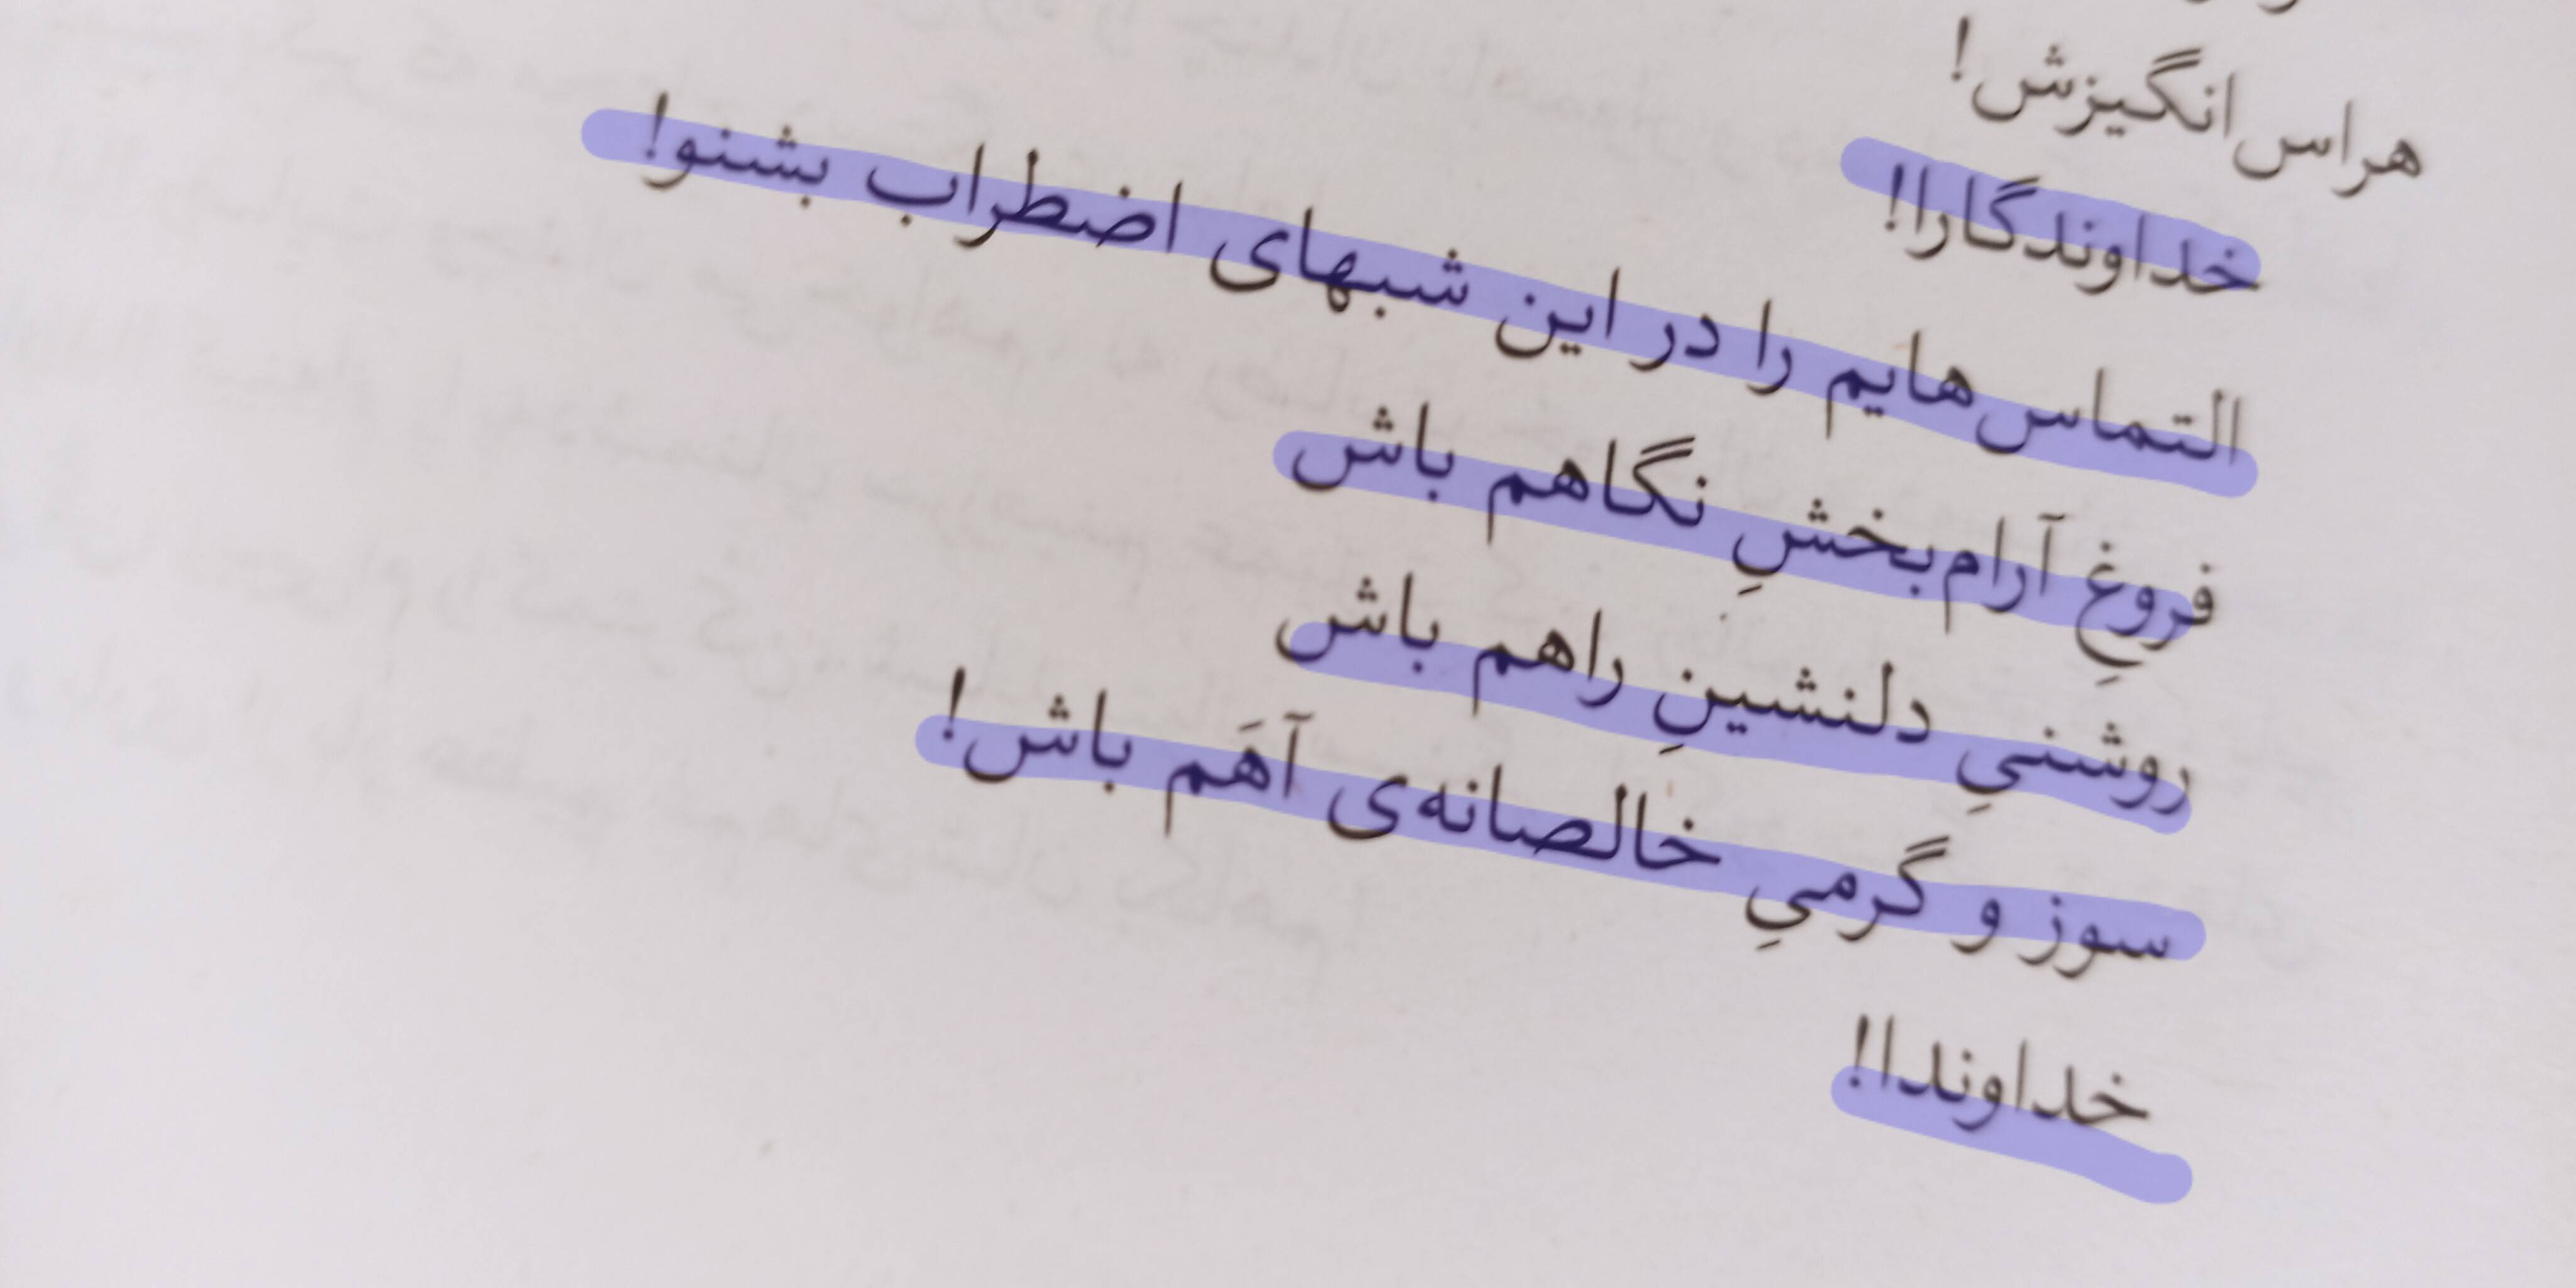 هراس‌انگیزش!
خداوندگارا!
التماس‌هایم را در این شبهای اضطراب بشنو!
فروغِ آرام‌بخشِ نگاهم باش
روشنیِ دلنشینِ راهم باش
سوز و گرمیِ خالصانه‌ی آهَم باش!
خداوندا!